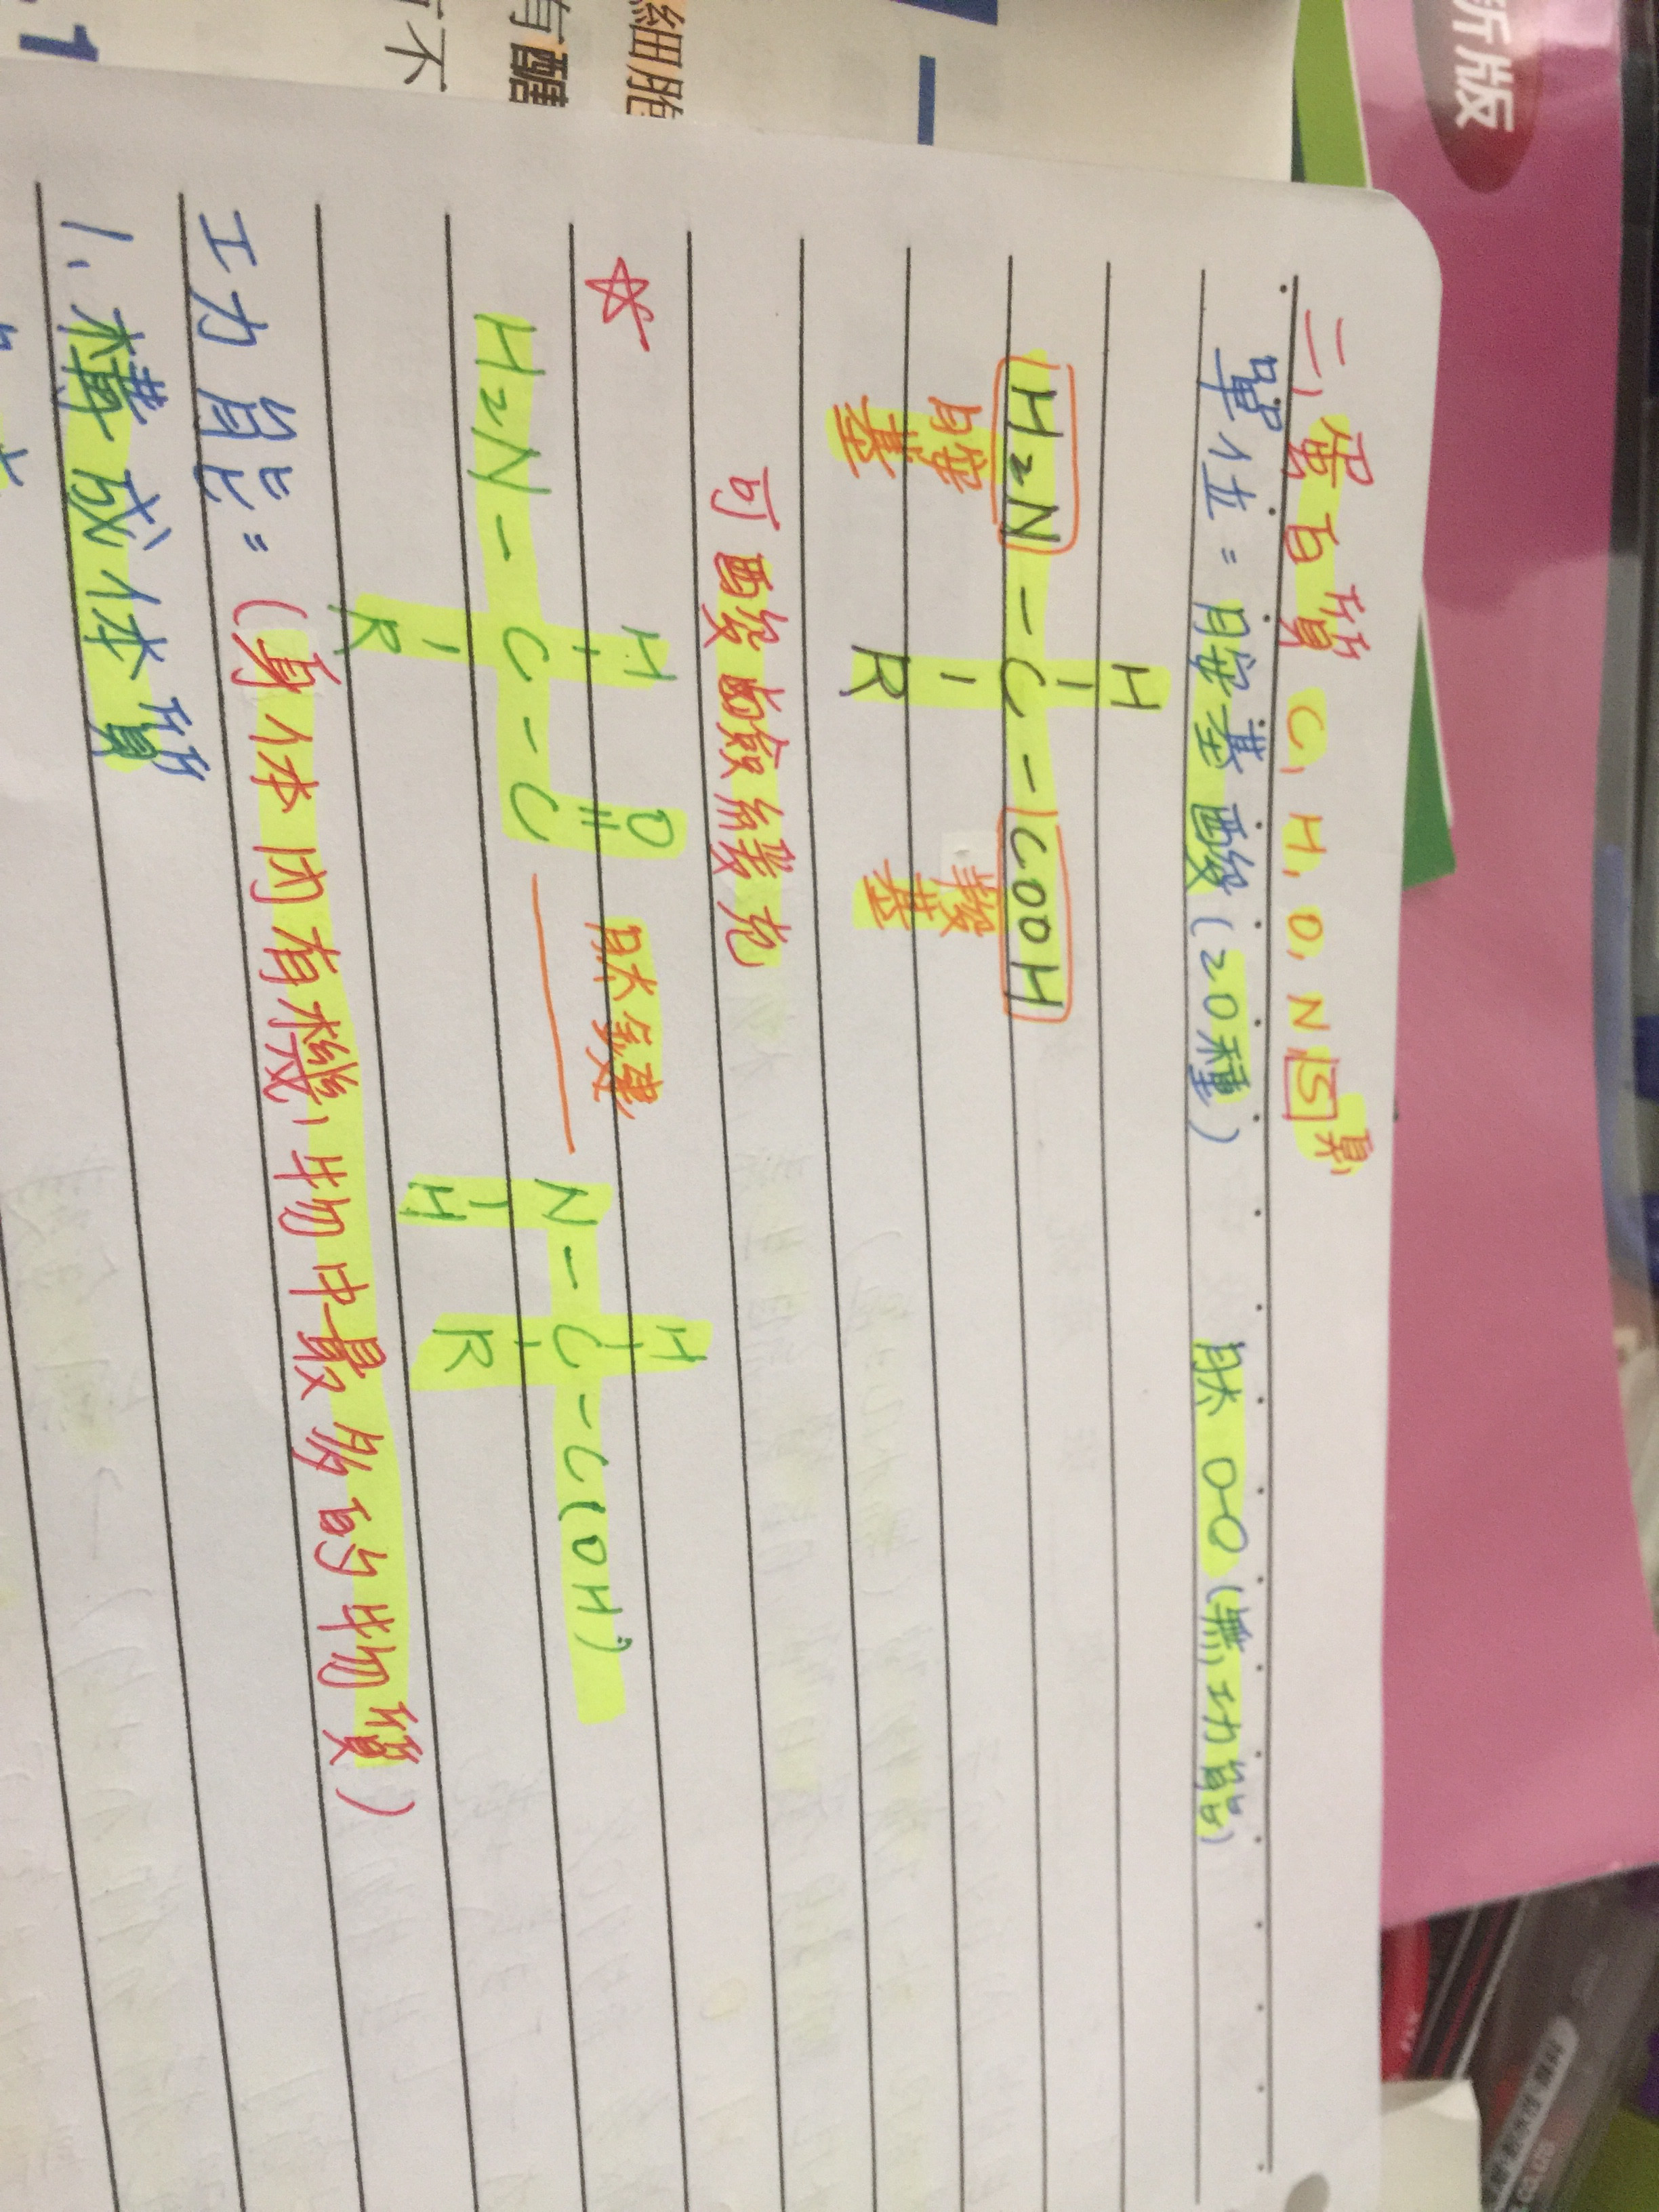 新版
細胞
有醣
有不
1
二、蛋白質 C, H, O, N S 臭
單位=胺基酸(20種) 肽 O-O (無功能)
H
H₂N - C - COOH
胺基 R 羧基
可酸鹼緩衝
☆ H O 肽鍵 H
H₂N - C - C N - C - C(OH)
R H R
功能=(身体內有機物中最多的物質)
1. 構成体質